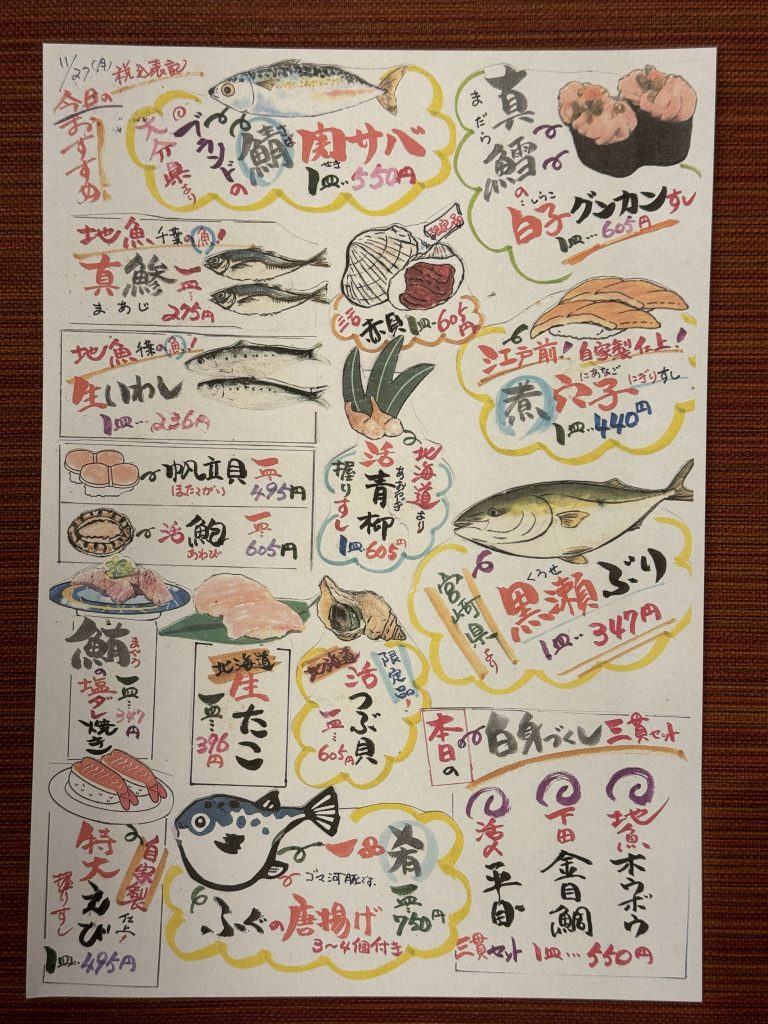 11/27(月) 税込表記
今日のおすすめ
大分県より
ブランドの
鯖 さば
関サバ せき
1皿…550円
真鱈の まだら
白子グンカンすし しらこ
1皿…605円
地魚 千葉の魚!
真鯵 まあじ
一皿…275円
限定品
活赤貝 1皿…605円
地魚 千葉の魚!
生いわし
1皿…236円
江戸前! 自家製仕上!
煮穴子 にあなご にぎりすし
1皿…440円
帆立貝 ほたてがい
一皿…495円
活鮑 あわび
一皿…605円
北海道より
活青柳 あおやぎ
握りすし
1皿…605円
宮崎県より
黒瀬ぶり くろせ
1皿…347円
鮪の塩ダレ焼き まぐろ
一皿…347円
北海道
生たこ
一皿…396円
北海道
限定品!
活つぶ貝
一皿…605円
本日の
白身づくし三貫セット
地魚ホウボウ
下田金目鯛
活〆平目
三貫セット 1皿…550円
自家製仕上!
特大えび
握りすし
1皿…495円
一品肴
ゴマ河豚です。
一皿…750円
ふぐの唐揚げ
3〜4個付き